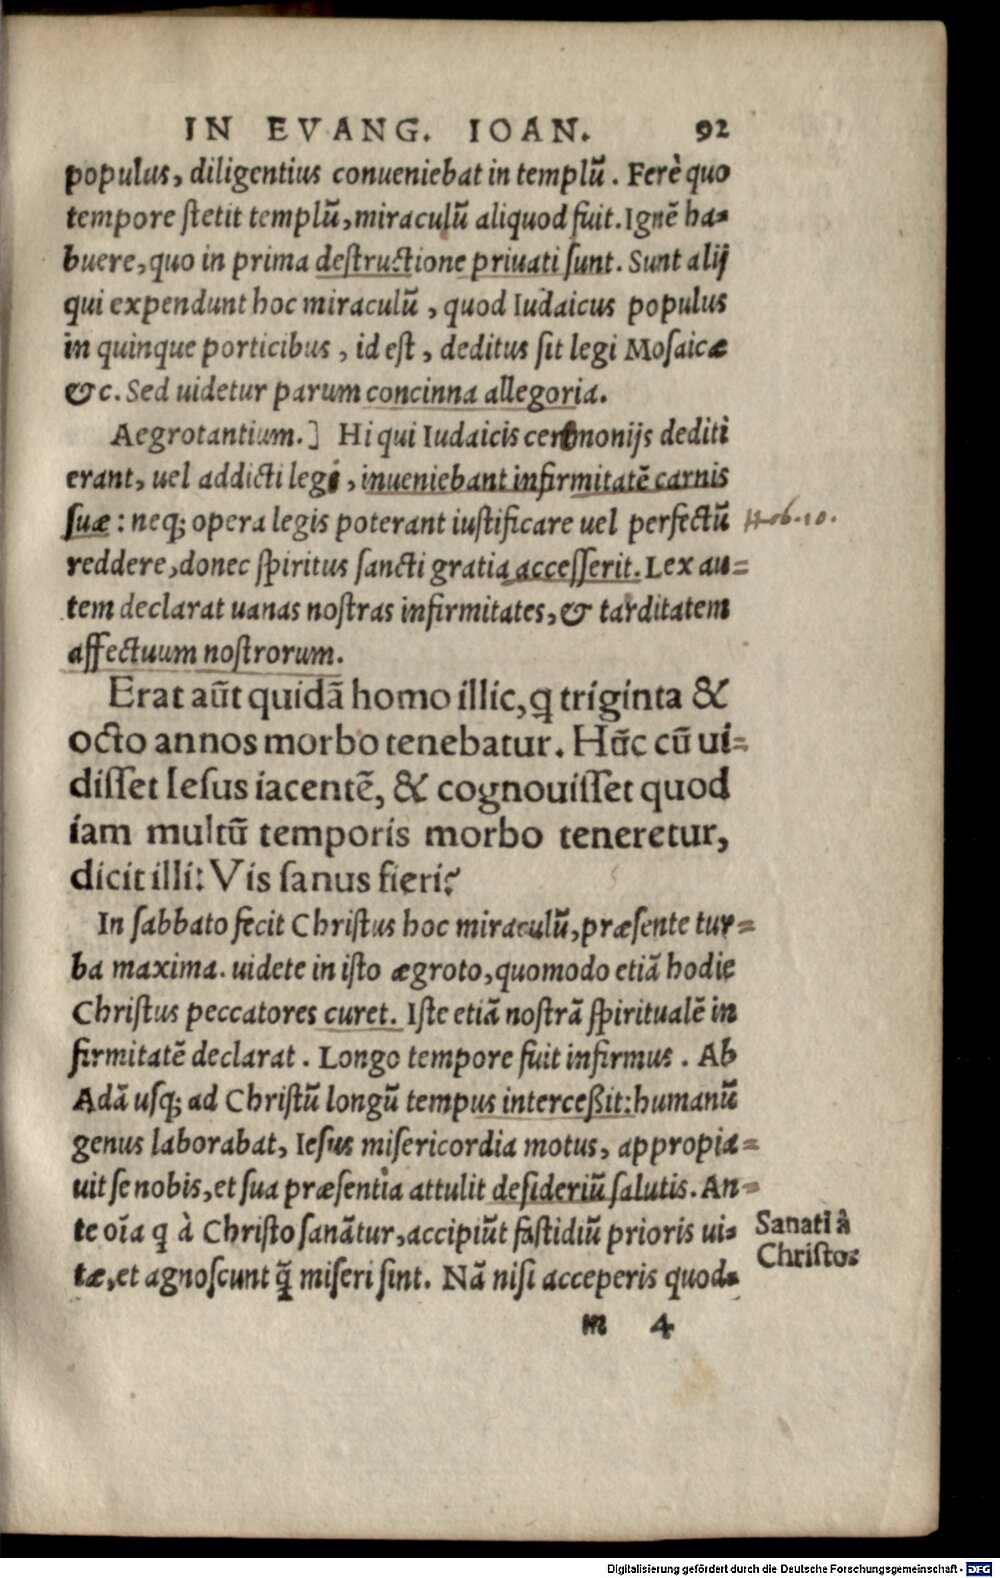 IN EVANG. IOAN. 92
populus, diligentius conueniebat in templũ. Ferè quo
tempore ſtetit templũ, miraculũ aliquod fuit. Ignẽ ha-
buere, quo in prima deſtructione priuati ſunt. Sunt alij
qui expendunt hoc miraculũ, quod Iudaicus populus
in quinque porticibus, id eſt, deditus ſit legi Moſaicæ
&c. Sed uidetur parum concinna allegoria.
Aegrotantium.] Hi qui Iudaicis ceremonijs dediti
erant, uel addicti legi, inueniebant infirmitatẽ carnis
ſuæ: neq; opera legis poterant iuſtificare uel perfectũ
Heb. 10.
reddere, donec ſpiritus ſancti gratia acceſſerit. Lex au-
tem declarat uanas noſtras infirmitates, & tarditatem
affectuum noſtrorum.
Erat aũt quidã homo illic, q̃ triginta &
octo annos morbo tenebatur. Hũc cũ ui-
diſſet Ieſus iacentẽ, & cognouiſſet quod
iam multũ temporis morbo teneretur,
dicit illi: Vis ſanus fieri?
In ſabbato fecit Chriſtus hoc miraculũ, præſente tur-
ba maxima. uidete in iſto ægroto, quomodo etiã hodie
Chriſtus peccatores curet. Iſte etiã noſtrã ſpiritualẽ in
firmitatẽ declarat. Longo tempore fuit infirmus. Ab
Adã uſq; ad Chriſtũ longũ tempus interceßit: humanũ
genus laborabat, Ieſus miſericordia motus, appropia-
uit ſe nobis, et ſua præſentia attulit deſideriũ ſalutis. An-
te oĩa q à Chriſto ſanãtur, accipiũt faſtidiũ prioris ui-
tæ, et agnoſcunt q̃ miſeri ſint. Nã niſi acceperis quod-
Sanati à
Chriſto.
m 4
Digitalisierung gefördert durch die Deutsche Forschungsgemeinschaft - DFG